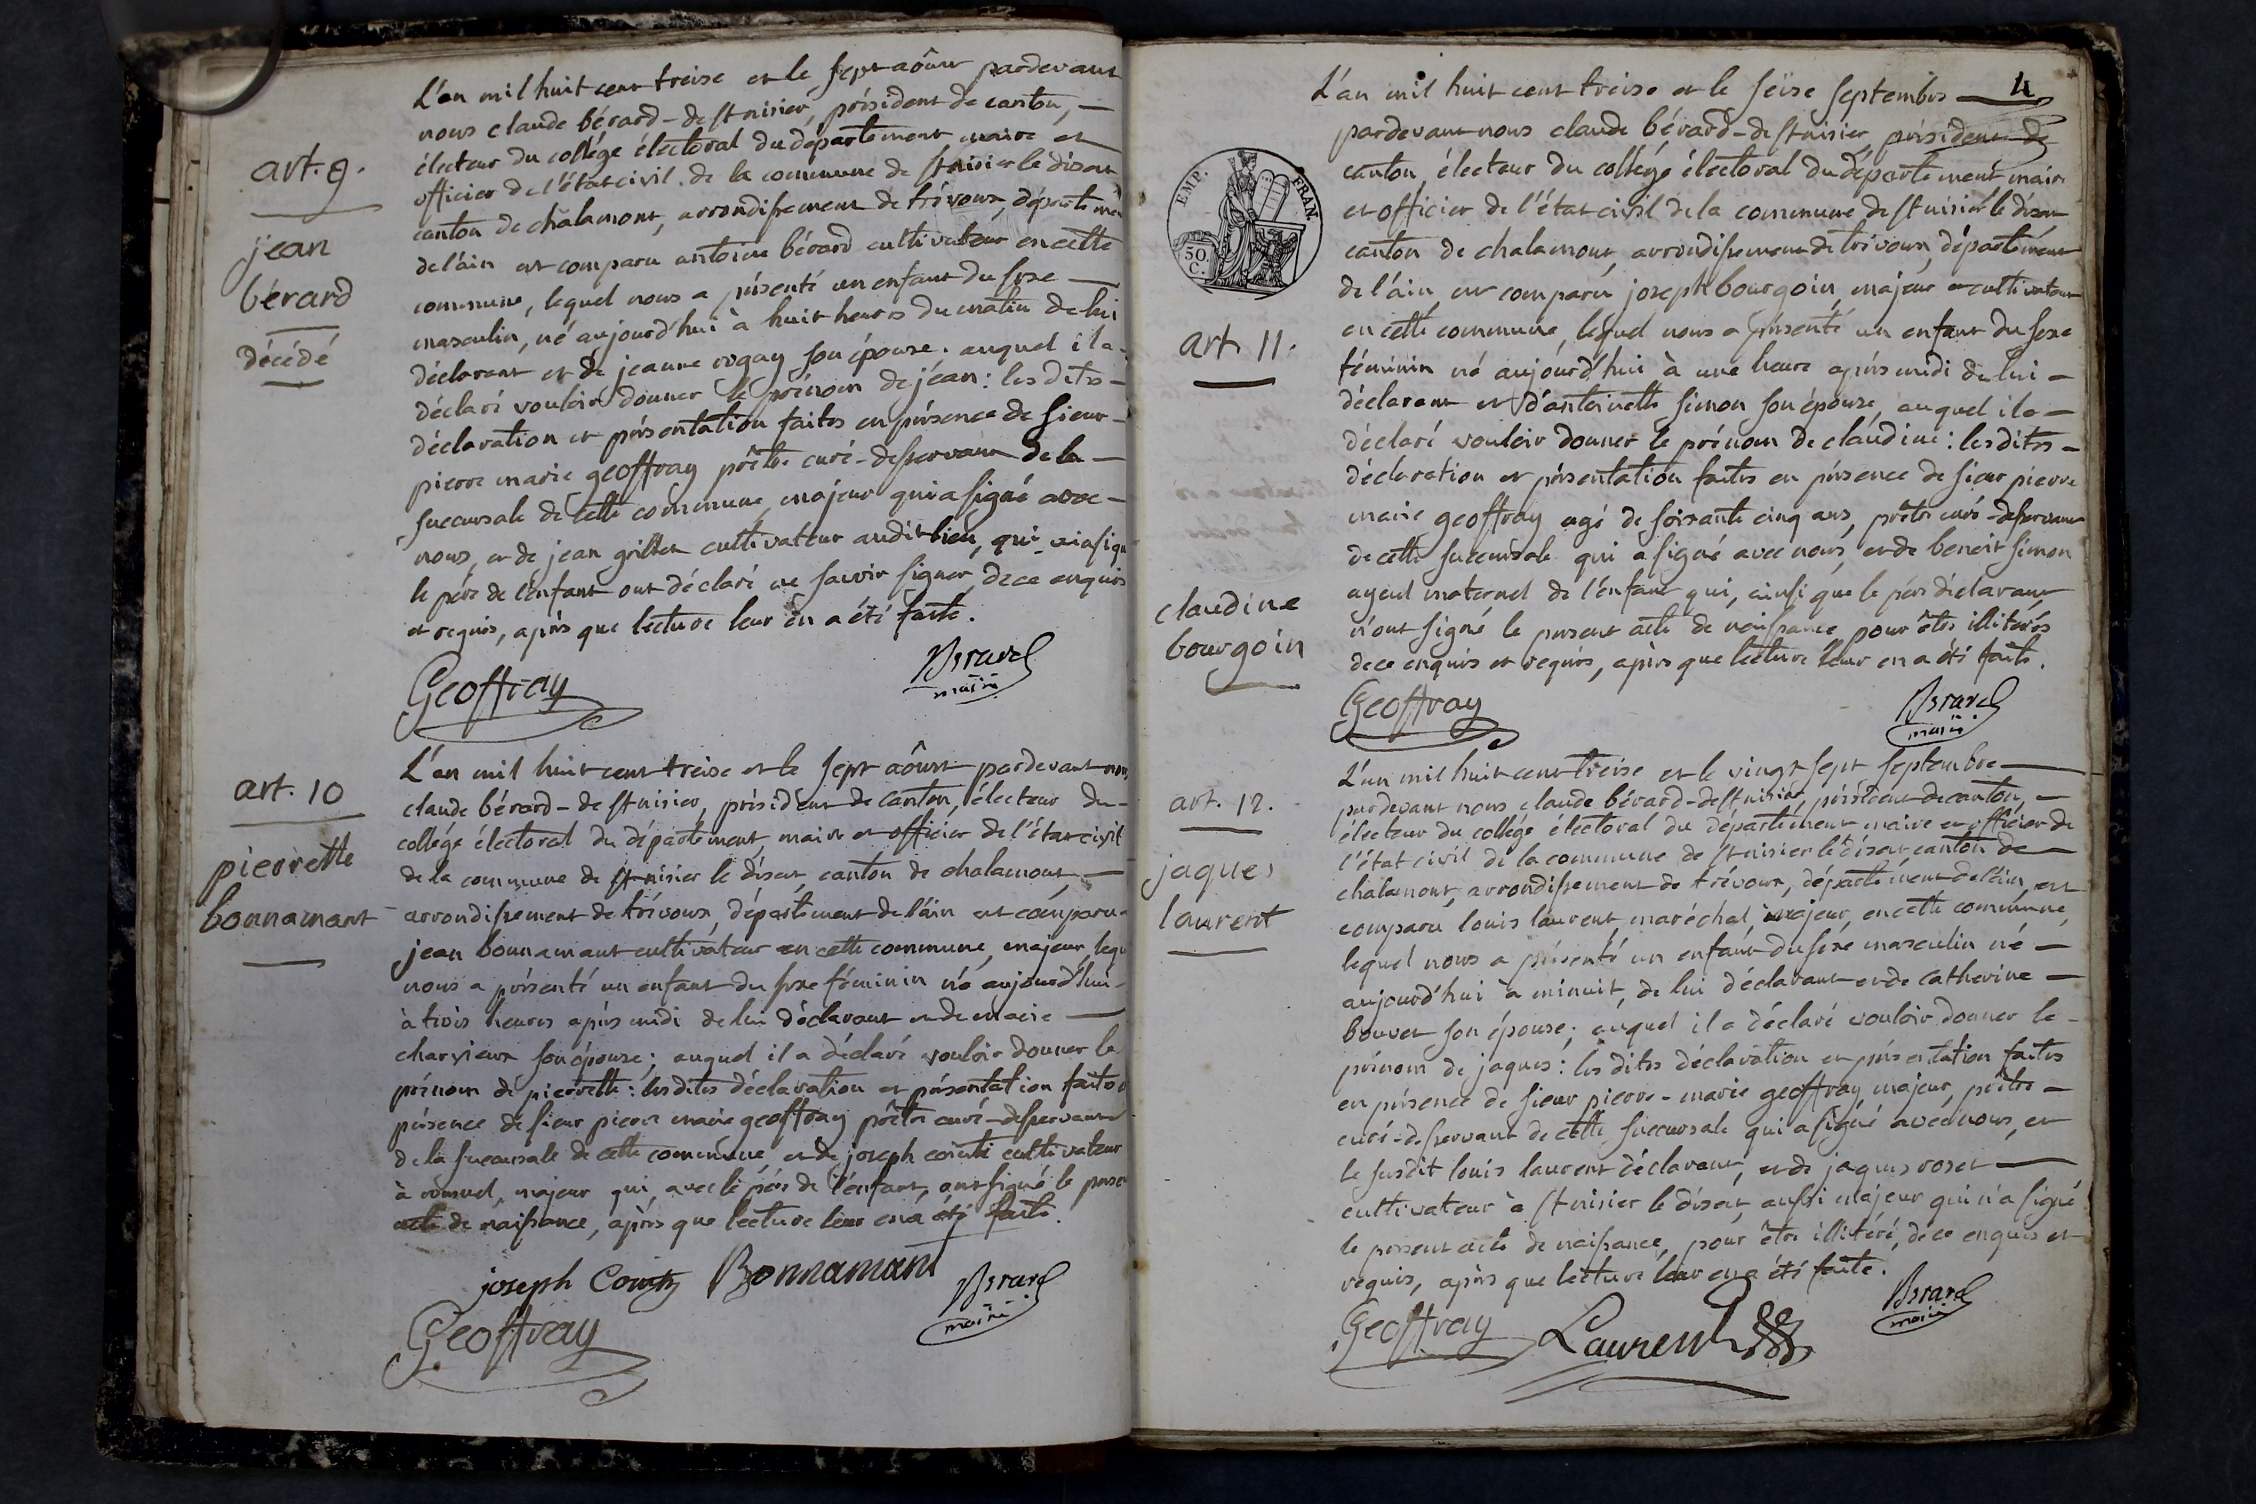 art. 9.
jean
bérard
décédé
L'an mil huit cent treise et le sept aôust pardevant
nous claude bérard-de st nisier, président de canton,
électeur du collége électoral du département maire et
officier de l'état civil de la commune de st nisier le désert
canton de chalamont, arrondissement de trévoux, départemen
de l'ain est comparu antoine bérard cultivateur en cette
commune, lequel nous a présenté un enfant du sexe
masculin, né aujourd'hui à huit heures du matin de lui
déclarant et de jeanne sou épouse. auquel il a
déclaré vouloir donner le prénom de jean: les dites
déclaration et présentation faites en présence de sieur
pierre marie geoffray prêtre curé-desservant de la
succursale de cette commune, majeur qui a signé avec
nous, et de jean grillet cultivateur audit lieu, qui ainsi qu
le père de l'enfant ont déclaré ne savoir signer, de ce enquis
et requis, après que lecture leur en a été faite.
Geoffray
Berard
maire
art. 10
pierrette
bonnamant
L'an mil huit cent treise et le sept aôust pardevant nous
claude bérard-de st nisier, président de canton, électeur du
collége électoral du département, maire et officier de l'état civil
de la commune de st nisier le désert, canton de chalamont,
arrondissement de trévoux, département de l'ain est comparu
jean bonnamant cultivateur en cette commune, majeur, lequ
nous a présenté un enfant du sexe féminin né aujourd'hui
à trois heures après midi de lui déclarant et de marie
charvieux son épouse; auquel il a déclaré vouloir donner le
prénom de pierrette: les dites déclaration et présentation faites
présence de sieur pierre marie geoffray prêtre curé-desservant
de la succursale de cette commune et de joseph cultivateur
à romuel, majeur qui, avec le père de l'enfant, ont signé le prese
acte de naissance, après que lecture leur en a été faite.
joseph Bonnamant
Berard
maire
Geoffray
4
EMP. FRAN.
50.
C.
art. 11.
claudine
bourgoin
L'an mil huit cent treise et le seise septembre
pardevant nous claude bérard-de st nisier, président de
canton, électeur du collége électoral du département maire
et officier de l'état civil de la commune de st nisier le désert
canton de chalamont, arrondissement de trévoux, département
de l'ain, est comparu joseph bourgoin, majeur cultivateur
en cette commune, lequel nous a présenté un enfant du sexe
féminin né aujourd'hui à une heure après midi de lui
déclarant et d'antoinette simon son épouse, auquel il a
déclaré vouloir donner le prénom de claudine: les dites
déclaration et présentation faites en présence de sieur pierre
marie geoffray agé de soixante cinq ans, prêtre curé-desservant
de cette succursale qui a signé avec nous, et de benoit simon
ayeul maternel de l'enfant qui, ainsi que le père déclarant
n'ont signé le present acte de naissance pour être illitérés
de ce enquis et requis, après que lecture leur en a été faite.
Geoffray
Berard
maire
art. 12.
jaques
laurent
L'an mil huit cent treise et le vingt sept septembre
pardevant nous claude bérard-de st nisier, président de canton,
électeur du collége électoral du département maire et officier de
l'état civil de la commune de st nisier le désert, canton de
chalamont, arrondissement de trévoux, département de l'ain, est
comparu louis laurent, maréchal, majeur, en cette commune,
lequel nous a présenté un enfant du sexe masculin né
aujourd'hui à minuit, de lui déclarant et de catherine
bouvet son épouse; auquel il a déclaré vouloir donner le
prénom de jaques: les dites déclaration et présentation faites
en présence de sieur pierre-marie geoffray, majeur, prêtre
curé-desservant de cette succursale qui a signé avec nous, et
le susdit louis laurent déclarant, et de jaques roset
cultivateur à st nisier le désert, aussi majeur qui n'a signé
le present acte de naissance, pour être illitéré, de ce enquis et
requis, après que lecture leur en a été faite.
Geoffray Laurent
Berard
maire